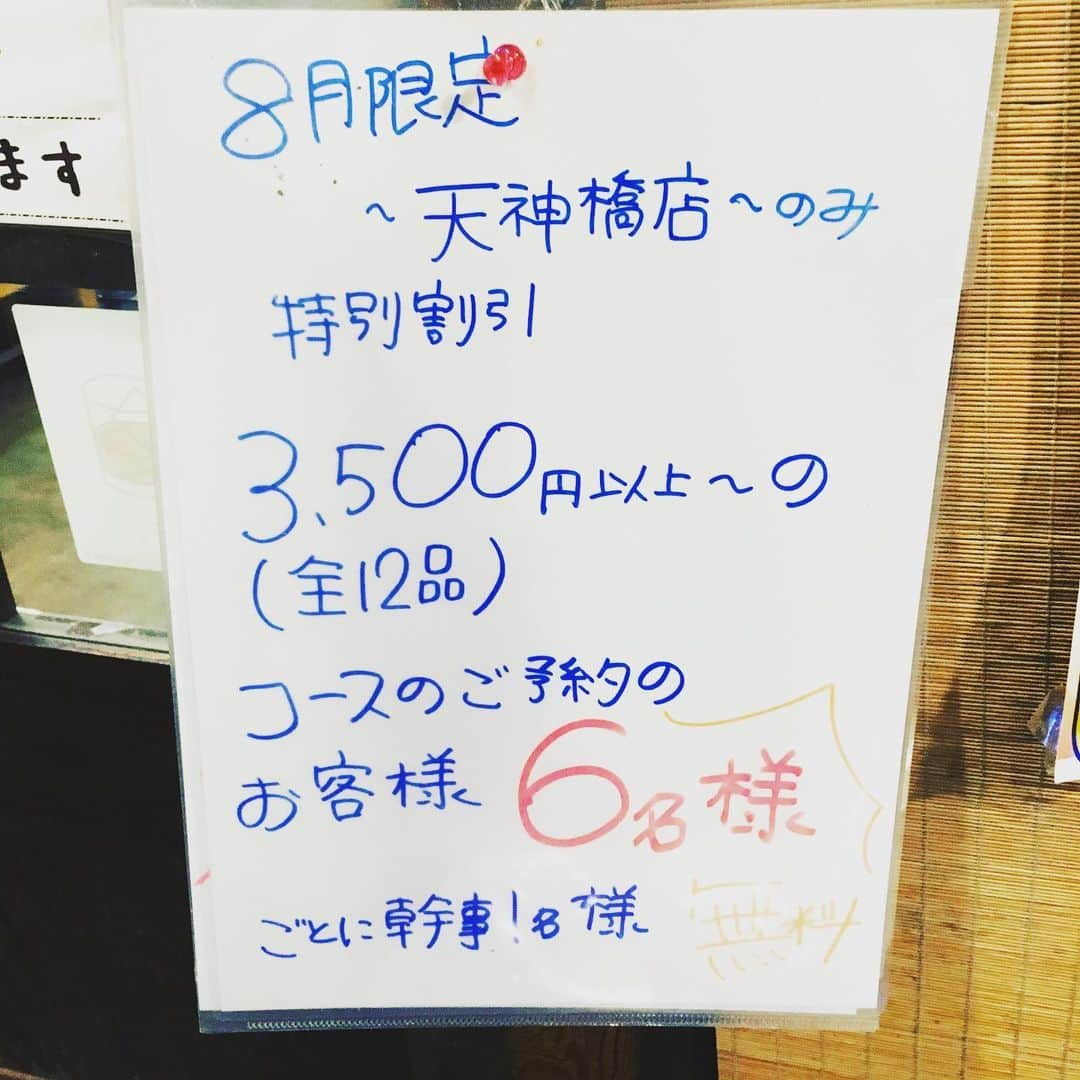 8月限定
~天神橋店~のみ
特別割引
3,500円以上~の
(全12品)
コースのご予約の
お客様 6名様
ごとに幹事1名様 無料
ます